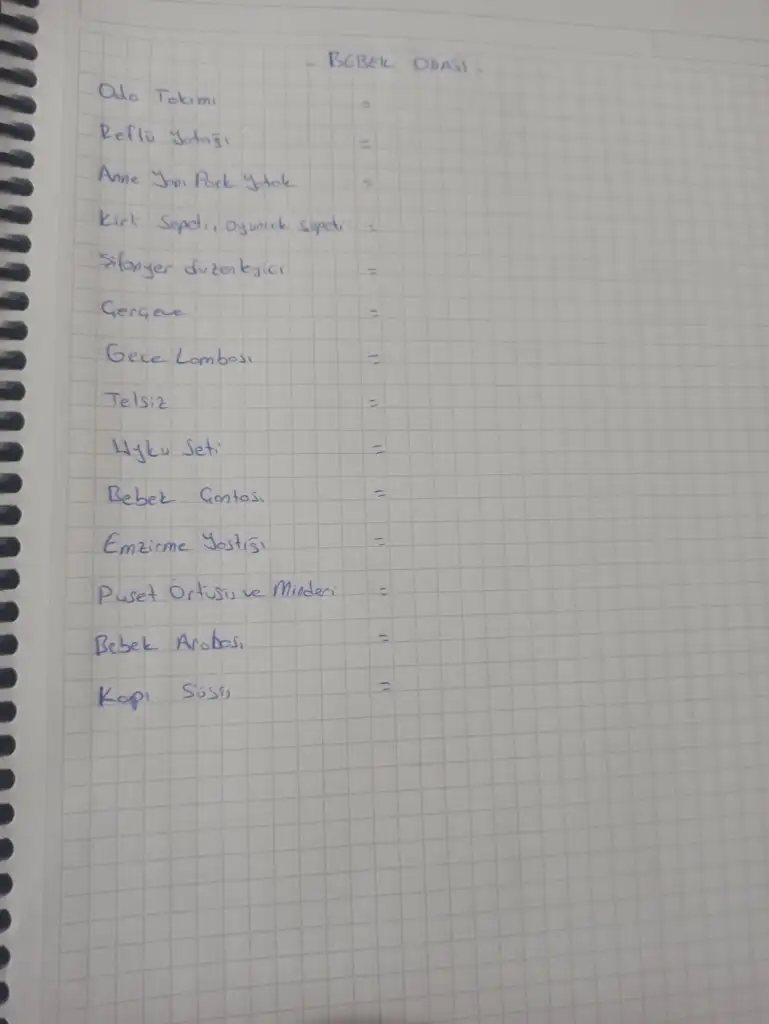 - BEBEK ODASI -
Oda Takımı =
Reflü Yatağı =
Anne Yanı Park Yatak =
Kirli Sepeti, oyuncak sepeti =
Şifonyer düzenleyici =
Çerçeve =
Gece Lambası =
Telsiz =
Uyku Seti =
Bebek Çantası =
Emzirme Yastığı =
Puset Örtüsü ve Minderi =
Bebek Arabası =
Kapı Süsü =